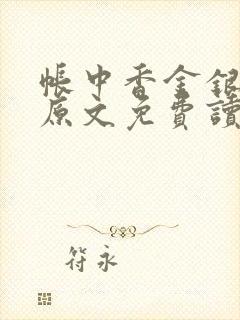 帳中香金銀
原文免費讀
符永